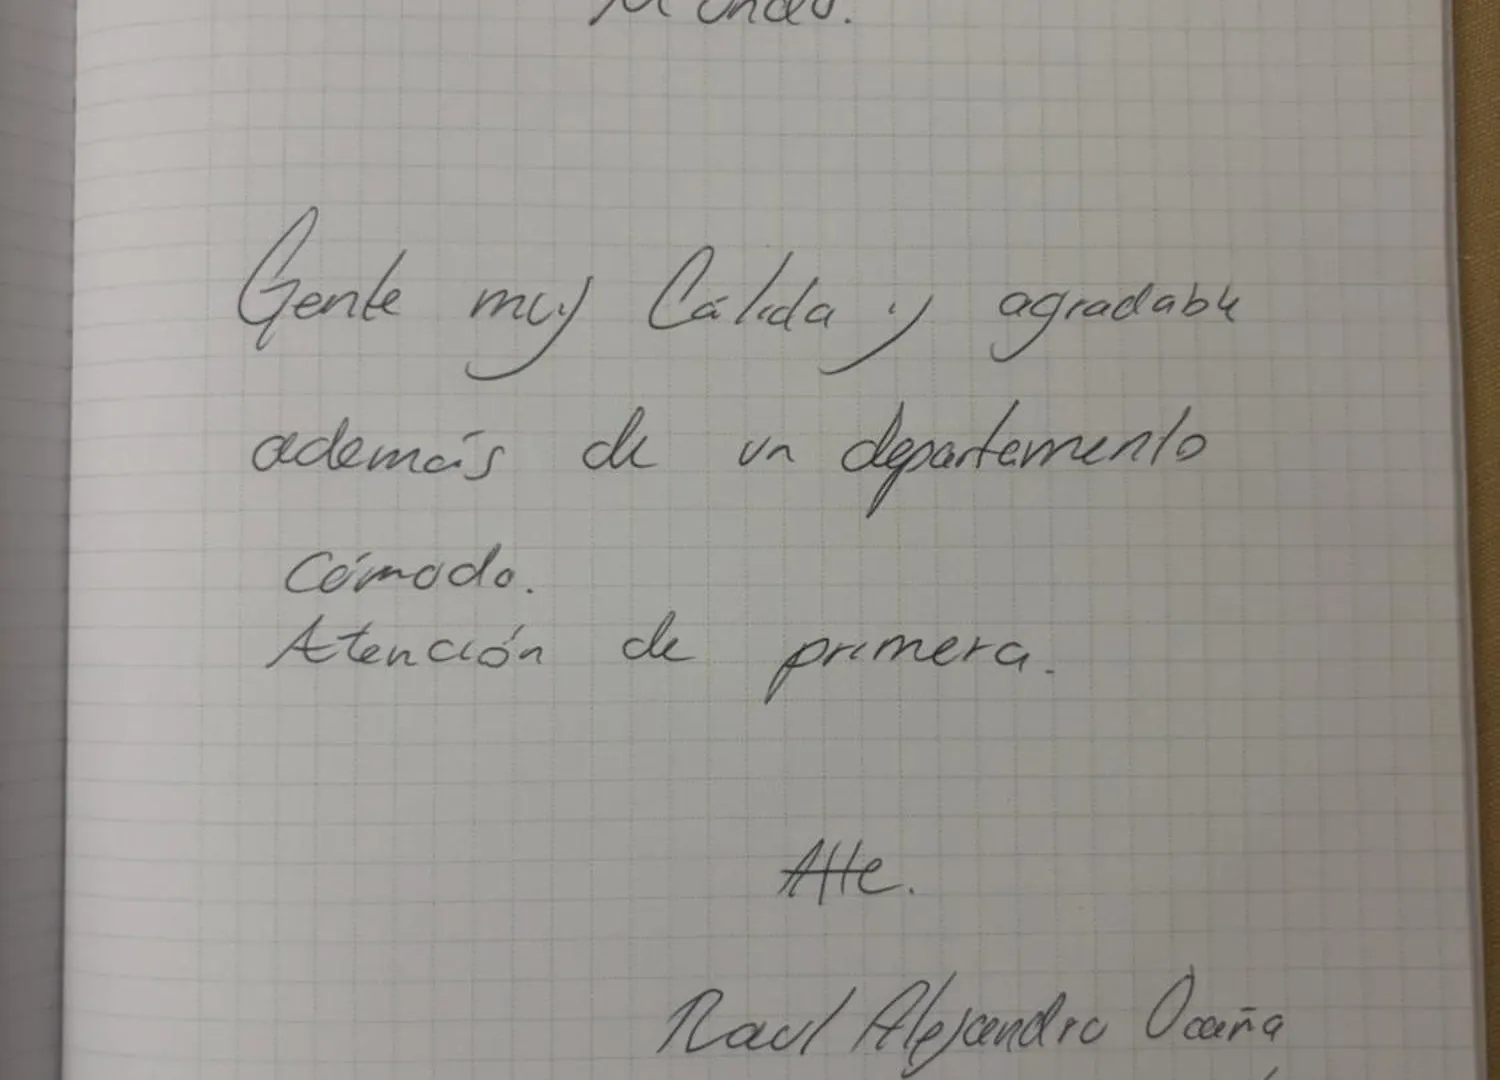 Gente muy Cálida y agradable
además de un departamento
cómodo.
Atención de primera.
Atte.
Raul Alejandro Ocaña